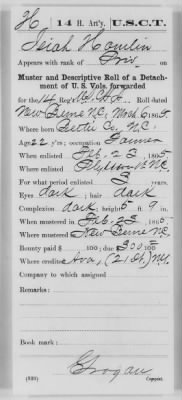 H | 14 H. Art'y. | U.S.C.T.
Isiah Hamlin
Appears with rank of Priv. on
Muster and Descriptive Roll of a Detachment
of U. S. Vols. forwarded
for the 14 Reg't U.S.C.H.A. Roll dated
New Berne N.C. Mch 6, 1865.
Where born N.C.
Age 22 y'rs; occupation Farmer
When enlisted Feb. 23, 1865
Where enlisted Plymouth N.C.
For what period enlisted 3 years.
Eyes dark; hair dark
Complexion dark; height 5 ft. 9 in.
When mustered in Feb. 23, 1865
Where mustered in New Berne N.C.
Bounty paid $ 100; due $ 300 100
Where credited Ava, (21 Dist) N.Y.
Company to which assigned
Remarks:
Book mark:
Grogan
(339) Copyist.